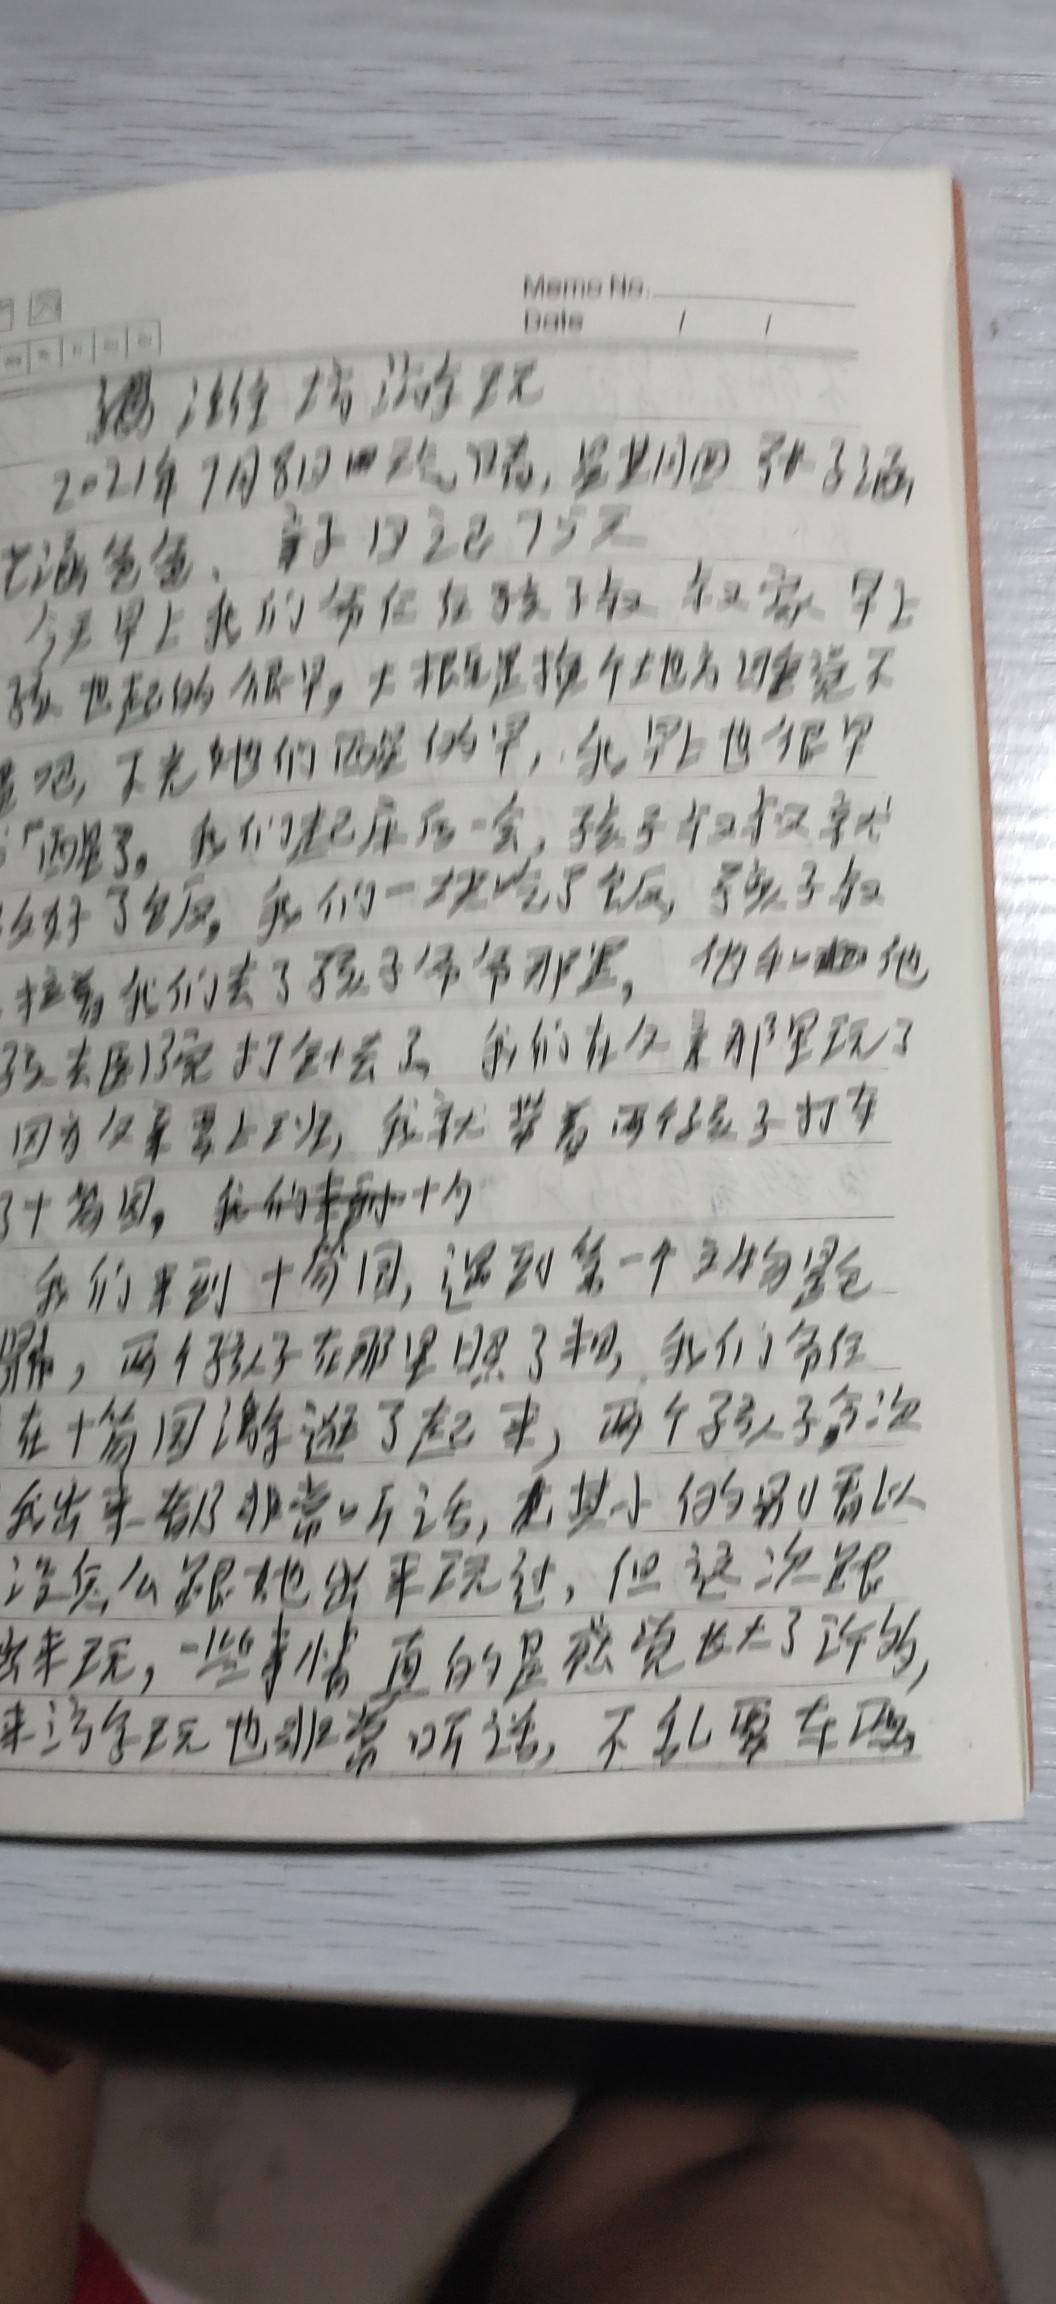 Memo No.
Date / /
潍坊游玩
2021年7月8日 天气晴，星期四 张子涵
艺涵爸爸、亲子日记75天
今天早上我们爷仨在孩子叔叔家 早上
孩也起的很早，大概是换个地方睡觉不
吧，不光她们醒的早，我早上也很早
醒了。我们起床后一会，孩子叔叔就
好了饭，我们一块吃了饭，孩子叔
拉着我们去了孩子爷爷那里，他和他
孩去医院打针去了，我们在父亲那里玩了
因为父亲要上班，我就带着两个孩子打车
了十笏园，
我们来到十笏园，遇到第一个
，两个孩子在那里照了相，我们爷仨
在十笏园游逛了起来，两个孩子每次
我出来都非常听话，尤其小的别看以
没怎么跟她出来玩过，但这次跟
出来玩，一些事情真的是感觉长大了许多，
来游玩也非常听话，不乱要东西